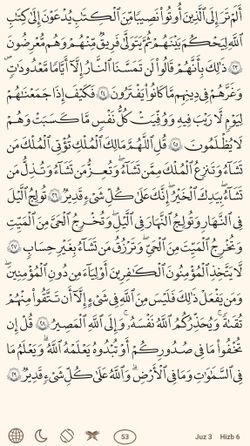 أَلَمْ تَرَ إِلَى ٱلَّذِينَ أُوتُوا۟ نَصِيبًا مِّنَ ٱلْكِتَـٰبِ يُدْعَوْنَ إِلَىٰ كِتَـٰبِ
ٱللَّهِ لِيَحْكُمَ بَيْنَهُمْ ثُمَّ يَتَوَلَّىٰ فَرِيقٌ مِّنْهُمْ وَهُم مُّعْرِضُونَ
﴿٢٣﴾ ذَٰلِكَ بِأَنَّهُمْ قَالُوا۟ لَن تَمَسَّنَا ٱلنَّارُ إِلَّآ أَيَّامًا مَّعْدُودَٰتٍ ۖ
وَغَرَّهُمْ فِى دِينِهِم مَّا كَانُوا۟ يَفْتَرُونَ ﴿٢٤﴾ فَكَيْفَ إِذَا جَمَعْنَـٰهُمْ
لِيَوْمٍ لَّا رَيْبَ فِيهِ وَوُفِّيَتْ كُلُّ نَفْسٍ مَّا كَسَبَتْ وَهُمْ
لَا يُظْلَمُونَ ﴿٢٥﴾ قُلِ ٱللَّهُمَّ مَـٰلِكَ ٱلْمُلْكِ تُؤْتِى ٱلْمُلْكَ مَن
تَشَآءُ وَتَنزِعُ ٱلْمُلْكَ مِمَّن تَشَآءُ وَتُعِزُّ مَن تَشَآءُ وَتُذِلُّ مَن
تَشَآءُ ۖ بِيَدِكَ ٱلْخَيْرُ ۖ إِنَّكَ عَلَىٰ كُلِّ شَىْءٍ قَدِيرٌ ﴿٢٦﴾ تُولِجُ ٱلَّيْلَ
فِى ٱلنَّهَارِ وَتُولِجُ ٱلنَّهَارَ فِى ٱلَّيْلِ ۖ وَتُخْرِجُ ٱلْحَىَّ مِنَ ٱلْمَيِّتِ
وَتُخْرِجُ ٱلْمَيِّتَ مِنَ ٱلْحَىِّ ۖ وَتَرْزُقُ مَن تَشَآءُ بِغَيْرِ حِسَابٍ ﴿٢٧﴾
لَّا يَتَّخِذِ ٱلْمُؤْمِنُونَ ٱلْكَـٰفِرِينَ أَوْلِيَآءَ مِن دُونِ ٱلْمُؤْمِنِينَ ۖ
وَمَن يَفْعَلْ ذَٰلِكَ فَلَيْسَ مِنَ ٱللَّهِ فِى شَىْءٍ إِلَّآ أَن تَتَّقُوا۟ مِنْهُمْ
تُقَىٰةً ۗ وَيُحَذِّرُكُمُ ٱللَّهُ نَفْسَهُۥ ۗ وَإِلَى ٱللَّهِ ٱلْمَصِيرُ ﴿٢٨﴾ قُلْ إِن
تُخْفُوا۟ مَا فِى صُدُورِكُمْ أَوْ تُبْدُوهُ يَعْلَمْهُ ٱللَّهُ ۗ وَيَعْلَمُ مَا
فِى ٱلسَّمَـٰوَٰتِ وَمَا فِى ٱلْأَرْضِ ۗ وَٱللَّهُ عَلَىٰ كُلِّ شَىْءٍ قَدِيرٌ ﴿٢٩﴾
53 Juz 3 Hizb 6